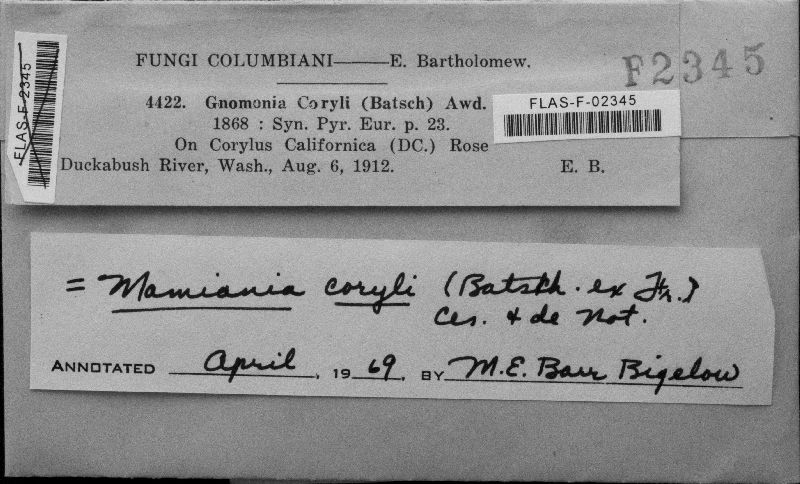 FUNGI COLUMBIANI——E. Bartholomew.
F2345
FLAS-F-2345
4422. Gnomonia Coryli (Batsch) Awd.
FLAS-F-02345
1868 : Syn. Pyr. Eur. p. 23.
On Corylus Californica (DC.) Rose
Duckabush River, Wash., Aug. 6, 1912. E. B.
= Mamiania coryli (Batsch. ex Fr.)
Ces. & de Not.
ANNOTATED April, 1969, BY M.E. Barr Bigelow